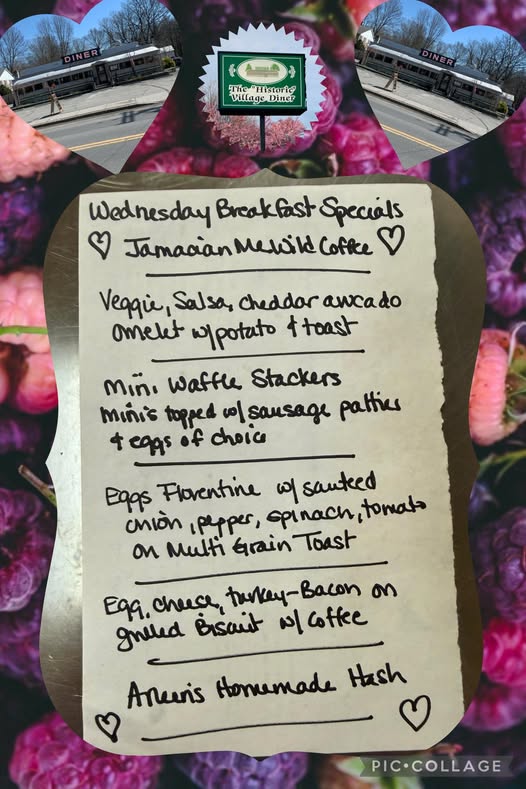 DINER
DINER
The "Historic"
Village Diner
Wednesday Breakfast Specials
Jamacian Me Wild Coffee
Veggie, Salsa, cheddar avocado
omelet w/potato & toast
Mini Waffle Stackers
Mini's topped w/ sausage patties
& eggs of choice
Eggs Florentine w/ sauteed
onion, pepper, spinach, tomato
on Multi Grain Toast
Egg, cheese, turkey-Bacon on
grilled Biscuit w/ Coffee
Homemade Hash
PIC•COLLAGE